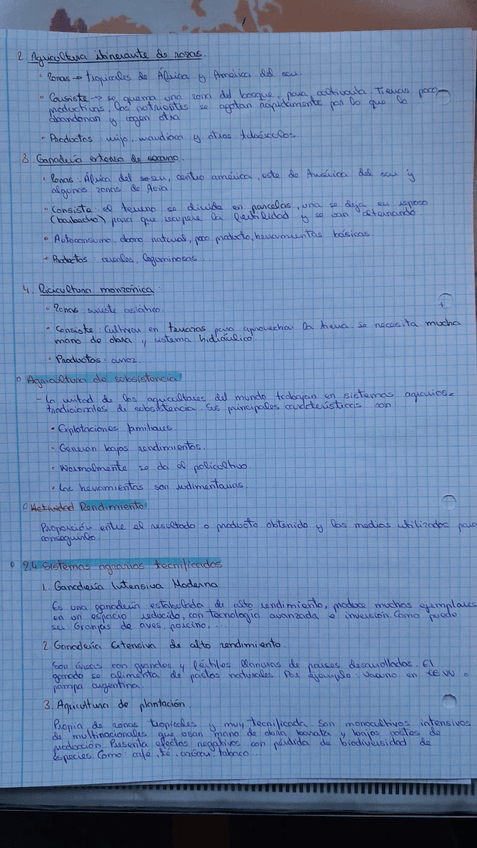 2. Agricultura itinerante de rozas.
· Zonas → tropicales de África y América del sur.
· Consiste → se quema una zona del bosque, para cultivarla. Tierras poco
productivas, los nutrientes se agotan rápidamente por lo que lo
abandonan y cogen otra
· Productos: mijo, mandioca y otros tubérculos.
3. Ganadería extensa de secano.
· Zonas: África del centro américa, este de América del sur y
algunas zonas de Asia
· Consiste: el terreno se divide en parcelas, una se deja en reposo
(barbecho) para que recupere la fertilidad y se van alternando
· Autoconsumo, abono natural, poco producto, herramientas básicas
· Productos: cereales, leguminosas
4. Ricicultura monzónica:
· Zonas: sureste asiático
· Consiste: Cultivar en terrazas para aprovechar la tierra. Se necesita mucha
mano de obra y sistema hidráulico
· Productos: arroz.
Agricultura de subsistencia
- La mitad de los agricultores del mundo trabajan en sistemas agrarios
tradicionales de subsistencia. Sus principales características son
· Explotaciones familiares
· Generan bajos rendimientos.
· Normalmente se da el policultivo.
· Las herramientas son rudimentarias.
Actividad Rendimiento
Proporción entre el resultado o producto obtenido y los medios utilizados para
conseguirlo
2.4 Sistemas agrarios tecnificados
1. Ganadería Intensiva Moderna
Es una ganadería estabulada de alto rendimiento, produce muchos ejemplares
en un espacio reducido, con tecnología avanzada e inversión. Como puede
ser Granjas de aves, porcino, ...
2. Ganadería Extensiva de alto rendimiento
Son áreas con grandes y fértiles llanuras de países desarrollados. El
ganado se alimenta de pastos naturales. Por ejemplo: Vacuno en EEUU o
pampa argentina.
3. Agricultura de plantación
Propia de zonas tropicales y muy tecnificada. Son monocultivos intensivos
de multinacionales que usan mano de obra barata y bajos costes de
producción. Presenta efectos negativos con pérdida de biodiversidad de
especies. Como café, té, cacao, tabaco